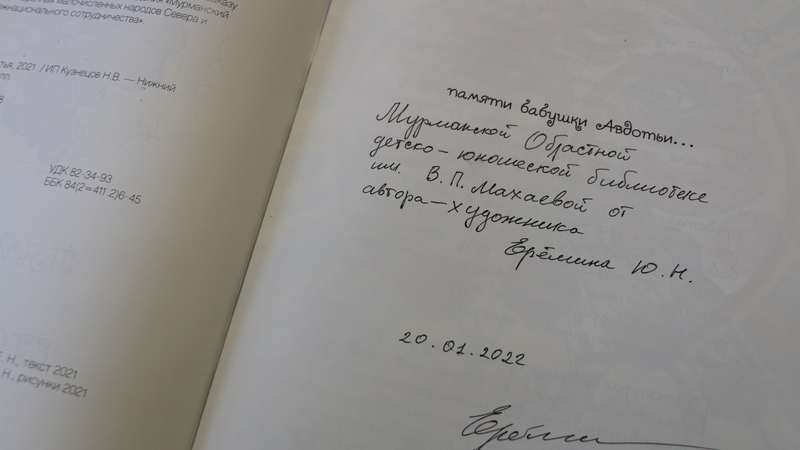 ния «Мурманский
малочисленных народов Севера и
сотрудничества».
2021. / ИП Кузнецов Н.В. — Нижний
УДК 82-34-93
ББК 84(2=411.2)6-45
Н., текст 2021
Н., рисунки 2021
памяти бабушки Авдотьи...
Мурманской Областной
детско-юношеской библиотеке
им. В.П. Махаевой от
автора-художника
Ерёмина Ю.Н.
20.01.2022